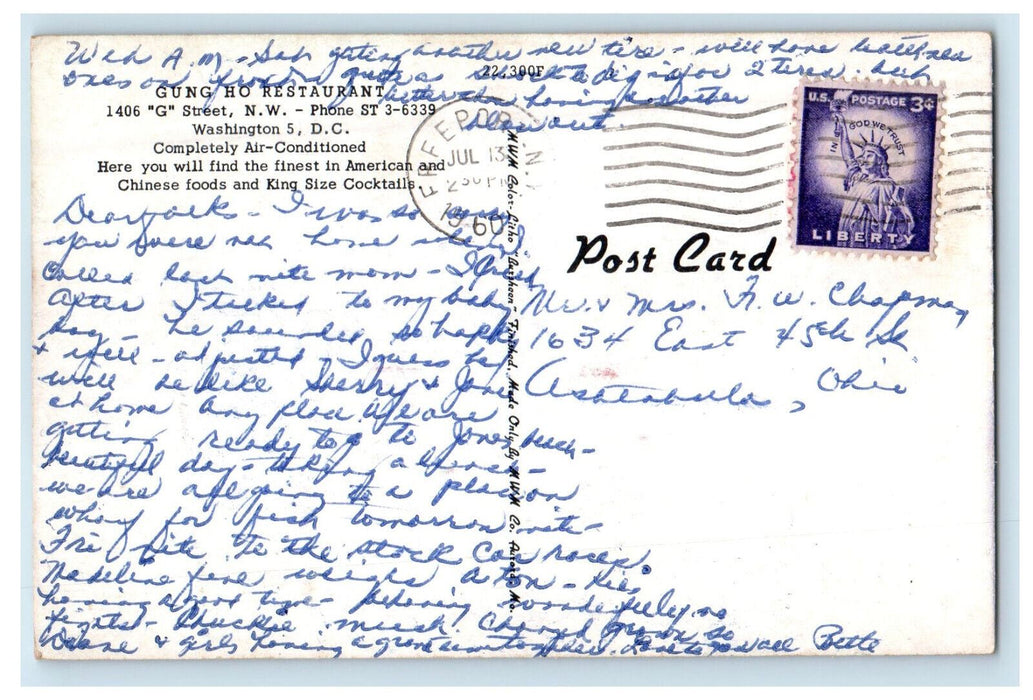 Wed A.M. - getting another new tire - we'll have
22,300F
ones on front - 2 tires but
better than having another
blow out.
GUNG HO RESTAURANT
1406 "G" Street, N.W. - Phone ST 3-6339
Washington 5, D.C.
Completely Air-Conditioned
Here you will find the finest in American and
Chinese foods and King Size Cocktails.
FREEPORT N.Y.
JUL 13
2 30 PM
1960
U.S. POSTAGE 3¢
IN GOD WE TRUST
LIBERTY
Post Card
MWM Color-Litho Bursheen - Finished, Made Only By MWM Co. Aurora, Mo.
Dear folks - I was so
you were not home when I
called last nite mom - I cried
after I talked to my baby
boy - he sounded so happy
& well-adjusted - I guess he
will be like Sherry & June
at home any place. We are
getting ready to go to Jones Beach -
beautiful day - taking a lunch -
we are all going to a place on
for fish tomorrow nite -
Fri nite to the stock car races.
Madeline weighs a ton - Kids
having a good time - behaving wonderfully no
fights - Chuckie much
& girls having a grand time together. Love to you all Bette
Mr. & Mrs. F. W. Chapman
1634 East 45th St
Ashtabula, Ohio